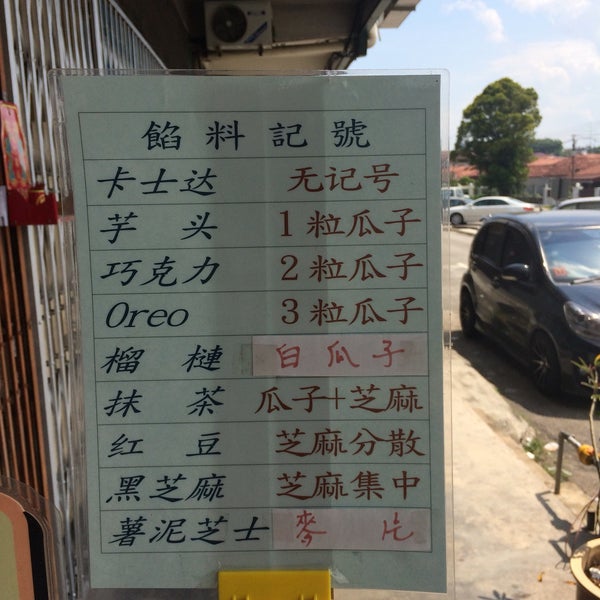 餡料記號
卡士达 无记号
芋头 1粒瓜子
巧克力 2粒瓜子
Oreo 3粒瓜子
榴梿 白瓜子
抹茶 瓜子+芝麻
红豆 芝麻分散
黑芝麻 芝麻集中
薯泥芝士 麥片